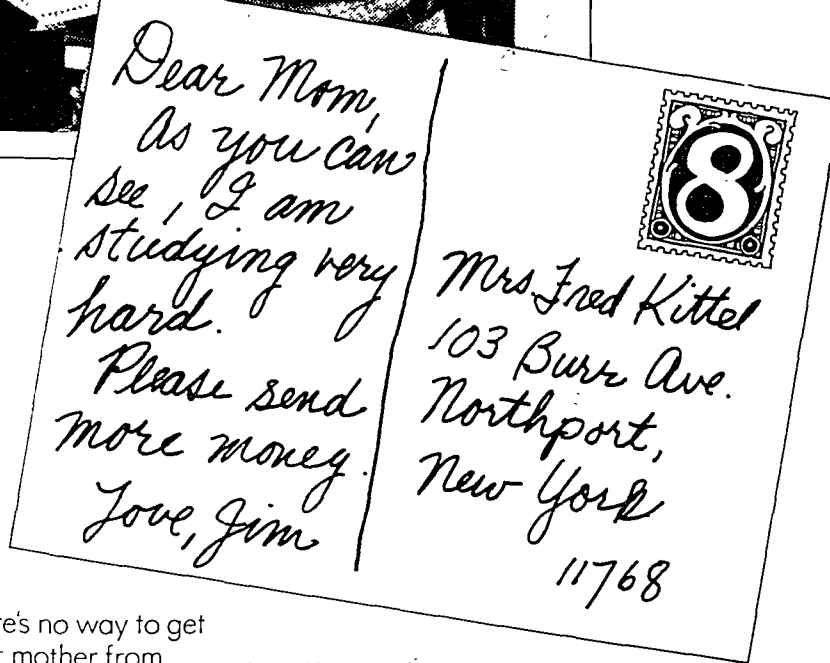 Dear Mom,
As you can
see, I am
studying very
hard.
Please send
more money.
Love, Jim
8
Mrs. Fred Kittel
103 Burr Ave.
Northport,
New York
11768
no way to get
mother from